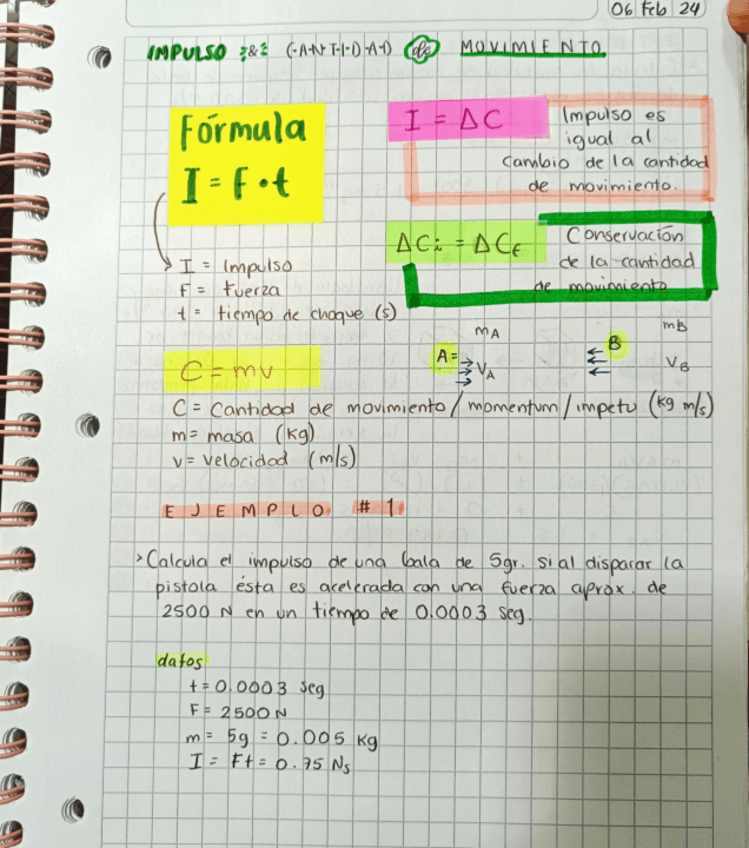 06 Feb 24
IMPULSO &  (-A-N-T-I-D-A-D) de MOVIMIENTO
Fórmula
I = F•t
I = ΔC
Impulso es
igual al
cambio de la cantidad
de movimiento.
ΔCi = ΔCf
Conservación
de la cantidad
de movimiento
I = Impulso
F = fuerza
t = tiempo de choque (s)
mA
mB
A =
B
VA
VB
C = mv
C = Cantidad de movimiento / momentum / impetu (kg m/s)
m = masa (kg)
v = velocidad (m/s)
EJEMPLO #1
> Calcula el impulso de una bala de 5gr. si al disparar la
pistola ésta es acelerada con una fuerza aprox. de
2500 N en un tiempo de 0.0003 seg.
datos
t = 0.0003 seg
F = 2500 N
m = 5g = 0.005 kg
I = Ft = 0.75 Ns